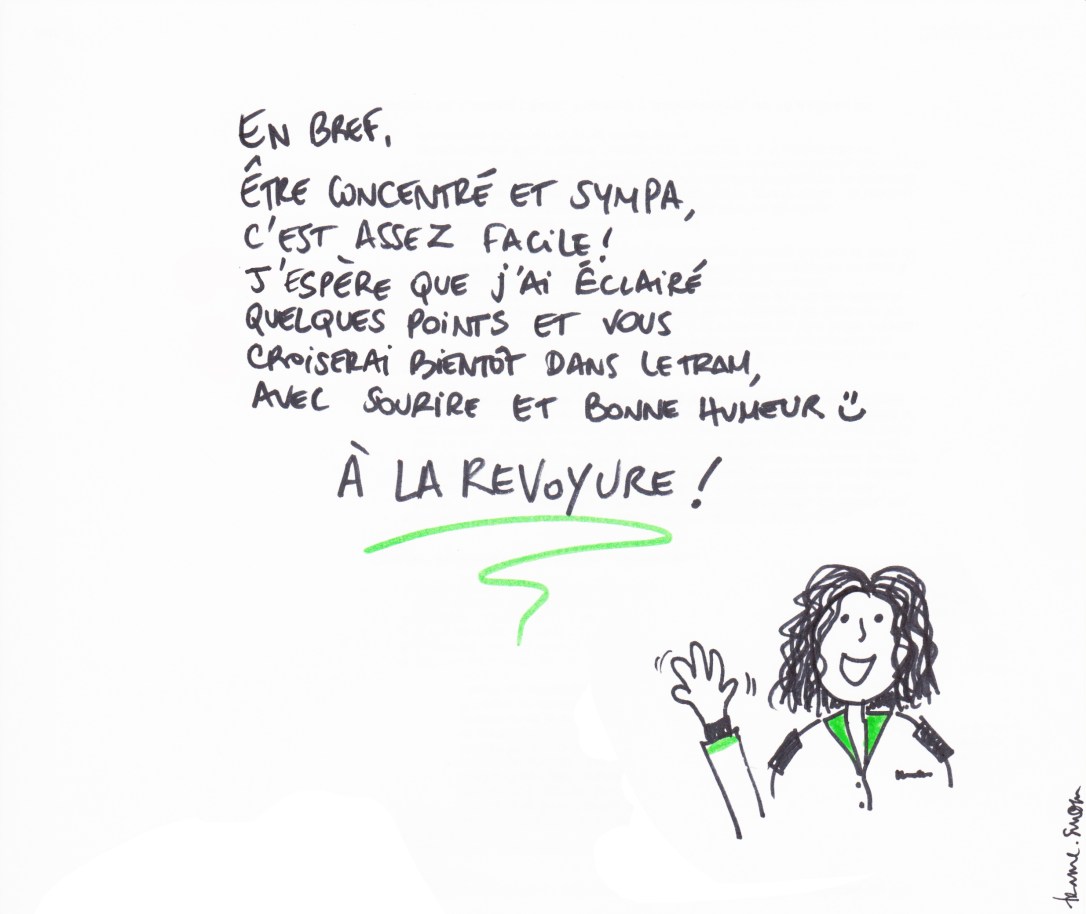 EN BREF,
ÊTRE CONCENTRÉ ET SYMPA,
C'EST ASSEZ FACILE !
J'ESPÈRE QUE J'AI ÉCLAIRÉ
QUELQUES POINTS ET VOUS
CROISERAI BIENTÔT DANS LE TRAM,
AVEC SOURIRE ET BONNE HUMEUR
À LA REVOYURE !